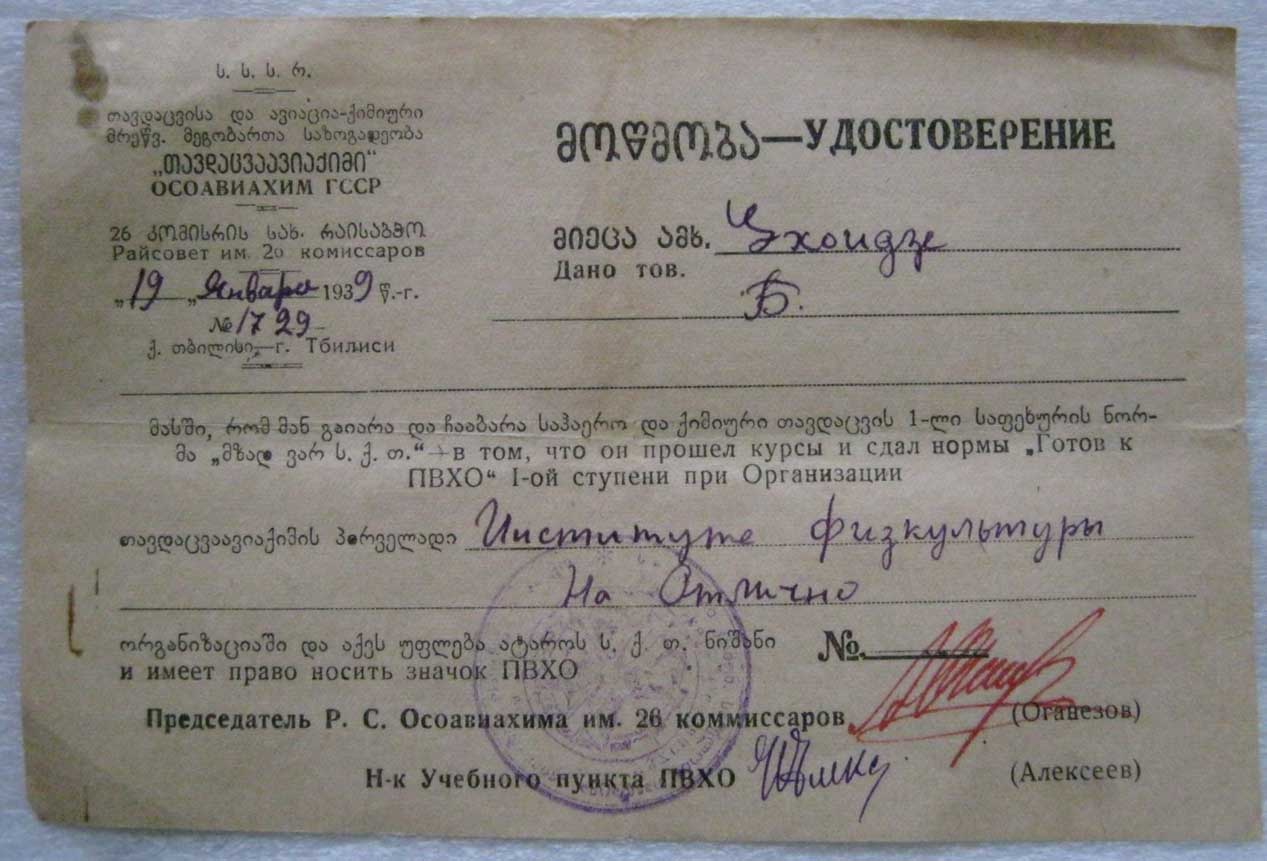 ს. ს. ს. რ.
თავდაცვისა და ავიაცია-ქიმიური
მრეწვ. მეგობართა საზოგადოება
„თავდაცვაავიაქიმი“
ОСОАВИАХИМ ГССР
26 კომისრის სახ. რაისაბჭო
Райсовет им. 26 комиссаров
„19 „ Января 1939 წ.-г.
№ 1729
ქ. თბილისი,—г. Тбилиси
მოწმობა—УДОСТОВЕРЕНИЕ
მიეცა ამხ. Цхоидзе
Дано тов.
Б.
მასში, რომ მან გაიარა და ჩააბარა საჰაერო და ქიმიური თავდაცვის 1-ლი საფეხურის ნორ-
მა „მზად ვარ ს. ქ. თ.“—в том, что он прошел курсы и сдал нормы „Готов к
ПВХО“ I-ой ступени при Организации
თავდაცვაავიაქიმის პირველადი Институте физкультуры
На Отлично
ორგანიზაციაში და აქვს უფლება ატაროს ს. ქ. თ. ნიშანი №
и имеет право носить значок ПВХО
Председатель Р. С. Осоавиахима им. 26 коммиссаров (Оганезов)
Н-к Учебного пункта ПВХО (Алексеев)